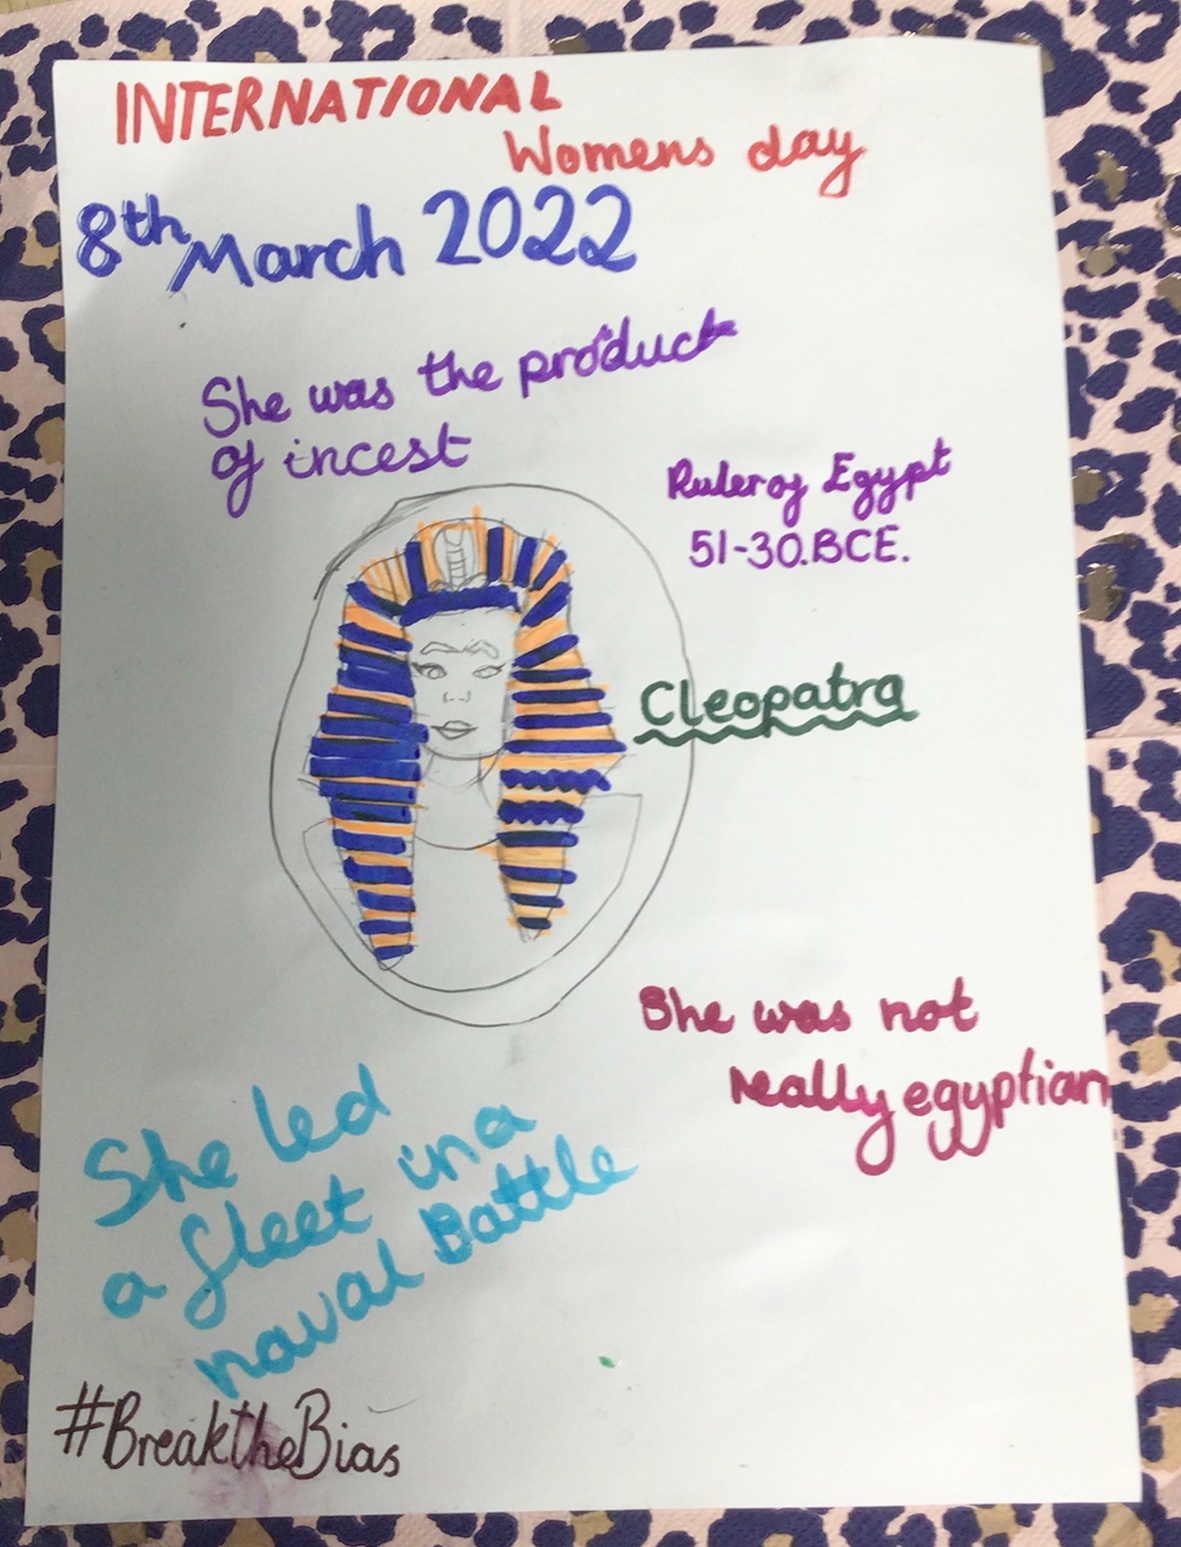 INTERNATIONAL
Womens day
8th March 2022
She was the product
of incest
Ruler of Egypt
51-30.BCE.
Cleopatra
She was not
really egyptian
She led
a fleet in a
naval Battle
#BreaktheBias